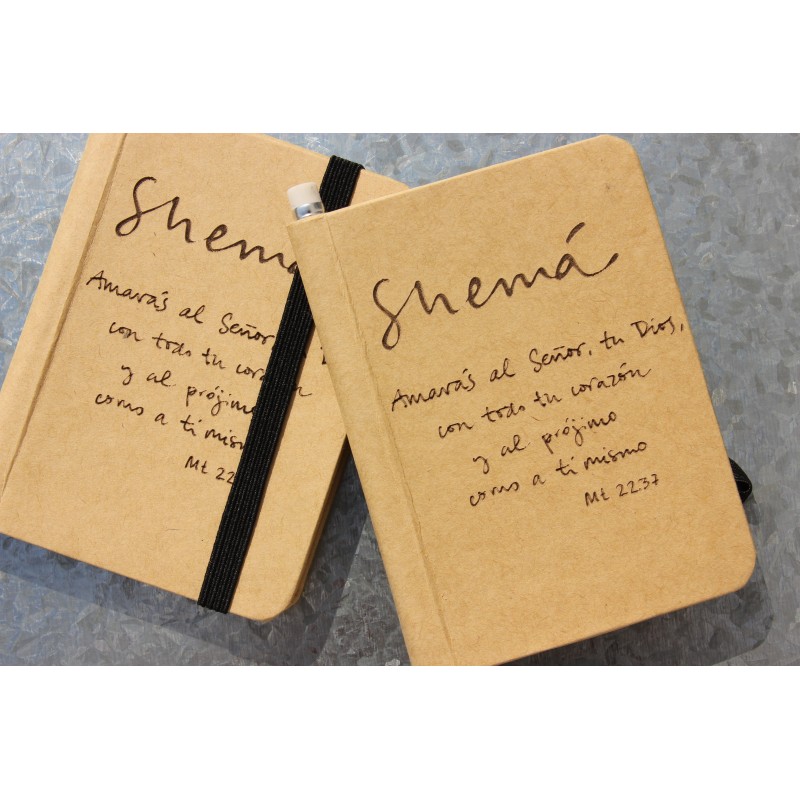 Shemá
Amarás al Señor,
con todo tu corazón
y al prójimo
como a ti mismo
Mt 22
Shemá
Amarás al Señor, tu Dios,
con todo tu corazón
y al prójimo
como a ti mismo
Mt 22.37